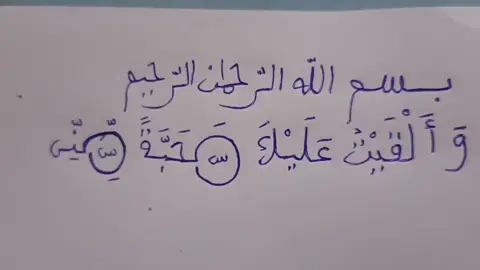 بسم الله الرحمن الرحيم
وَأَلْقَيْتُ عَلَيْكَ مَحَبَّةً مِّنِّي